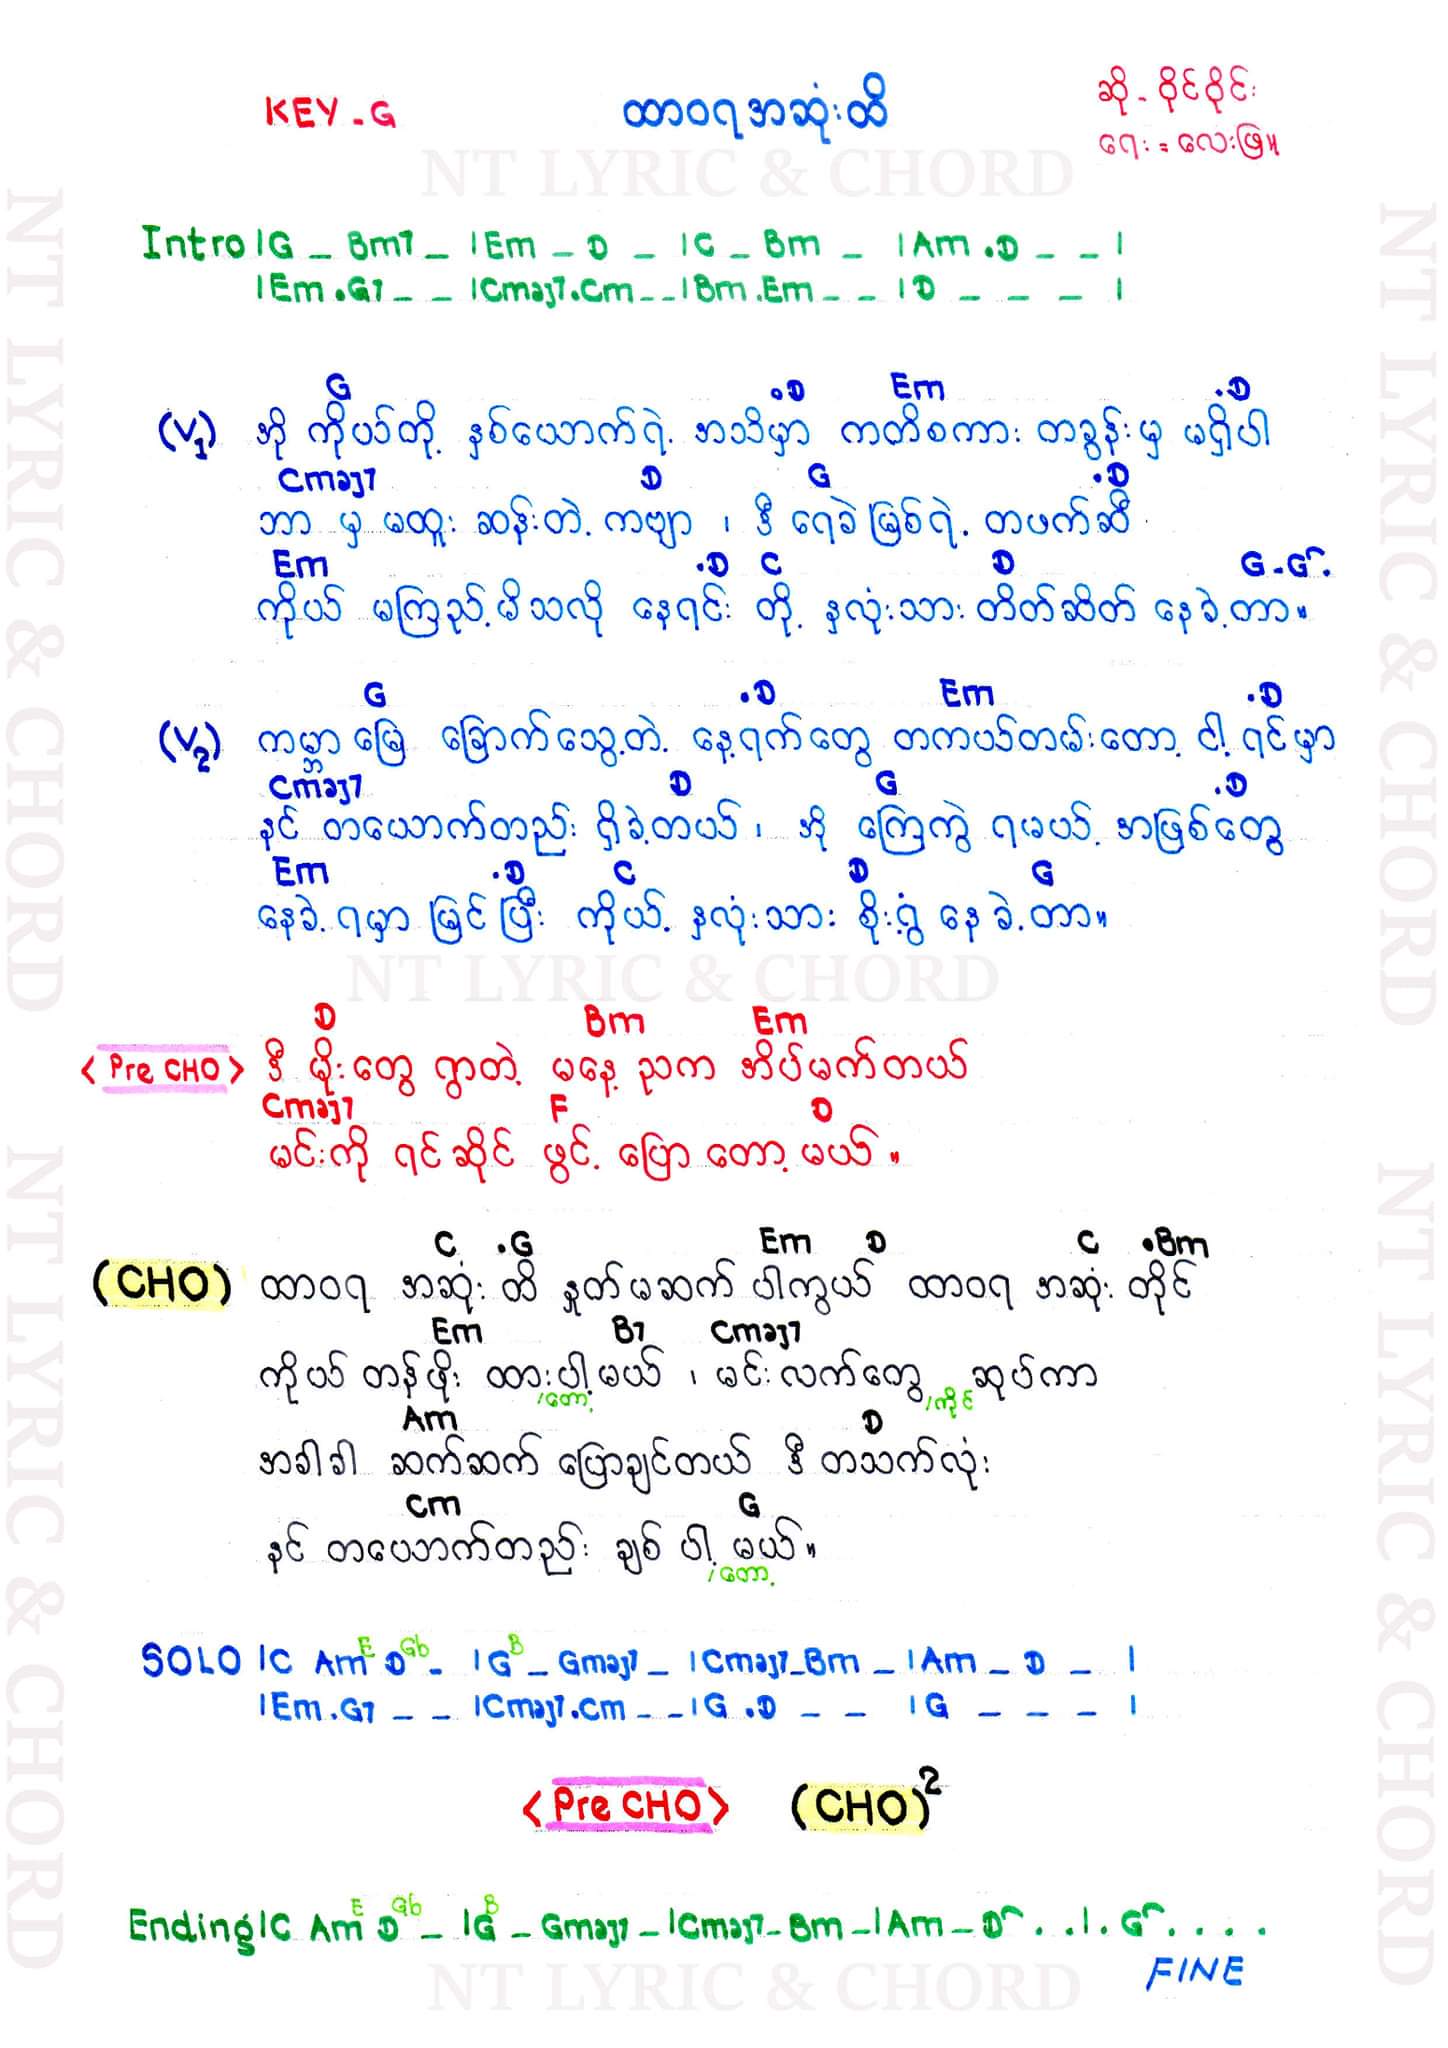 KEY - G
ထာဝရအဆုံးထိ
ဆို - ဝိုင်ဝိုင်း
ရေး = လေးဖြူ
NT LYRIC & CHORD
Intro |G _ Bm7 _ |Em _ D _ |C _ Bm _ |Am .D _ _ |
|Em .G7 _ _ |Cmaj7.Cm _ _ |Bm .Em _ _ |D _ _ _ |
G .D Em .D
(V1) အို ကိုယ်တို့ နှစ်ယောက်ရဲ့ အသိမှာ ကတိစကား တခွန်းမှ မရှိပါ
Cmaj7 D G .D
ဘာ မှ မထူး ဆန်းတဲ့ ကဗျာ ၊ ဒီ ရေခဲမြစ်ရဲ့ တဖက်ဆီ
Em .D C D G - G .
ကိုယ် မကြည့်မိသလို နေရင်း တို့ နှလုံးသား တိတ်ဆိတ် နေခဲ့တာ။
G .D Em .D
(V2) ကမ္ဘာမြေ ခြောက်သွေ့တဲ့ နေ့ရက်တွေ တကယ်တမ်းတော့ ငါ့ ရင်မှာ
Cmaj7 D G .D
နင် တယောက်တည်း ရှိခဲ့တယ် ၊ အို ကြေကွဲ ရမယ့် အဖြစ်တွေ
Em .D C D G
နေခဲ့ရမှာ မြင်ပြီး ကိုယ့် နှလုံးသား စိုးရွံ့ နေခဲ့တာ။
NT LYRIC & CHORD
D Bm Em
<Pre CHO> ဒီ မိုးတွေ ရွာတဲ့ မနေ့ညက အိပ်မက်တယ်
Cmaj7 F D
မင်းကို ရင်ဆိုင် ဖွင့် ပြော တော့မယ် ။
C .G Em D C .Bm
(CHO) ထာဝရ အဆုံးထိ နှုတ်မဆက် ပါကွယ် ထာဝရ အဆုံးတိုင်
Em B7 Cmaj7
ကိုယ် တန်ဖိုး ထားပါ့မယ် ၊ မင်းလက်တွေ ဆုပ်ကာ
/တော့ /ကိုင်
Am D
အခါခါ ဆက်ဆက် ပြောချင်တယ် ဒီ တသက်လုံး
Cm G
နင် တယောက်တည်း ချစ် ပါ့ မယ်။
/တော့
SOLO |C Am E D Gb - |G B - Gmaj7 - |Cmaj7-Bm - |Am - D - |
|Em .G7 _ _ |Cmaj7.Cm _ _ |G .D _ _ |G _ _ _ |
<Pre CHO> (CHO)2
Ending |C Am E D Gb - |G B - Gmaj7 - |Cmaj7-Bm - |Am - D . . |. G . . . .
FINE
NT LYRIC & CHORD
NT LYRIC & CHORD
NT LYRIC & CHORD
NT LYRIC & CHORD
NT LYRIC & CHORD